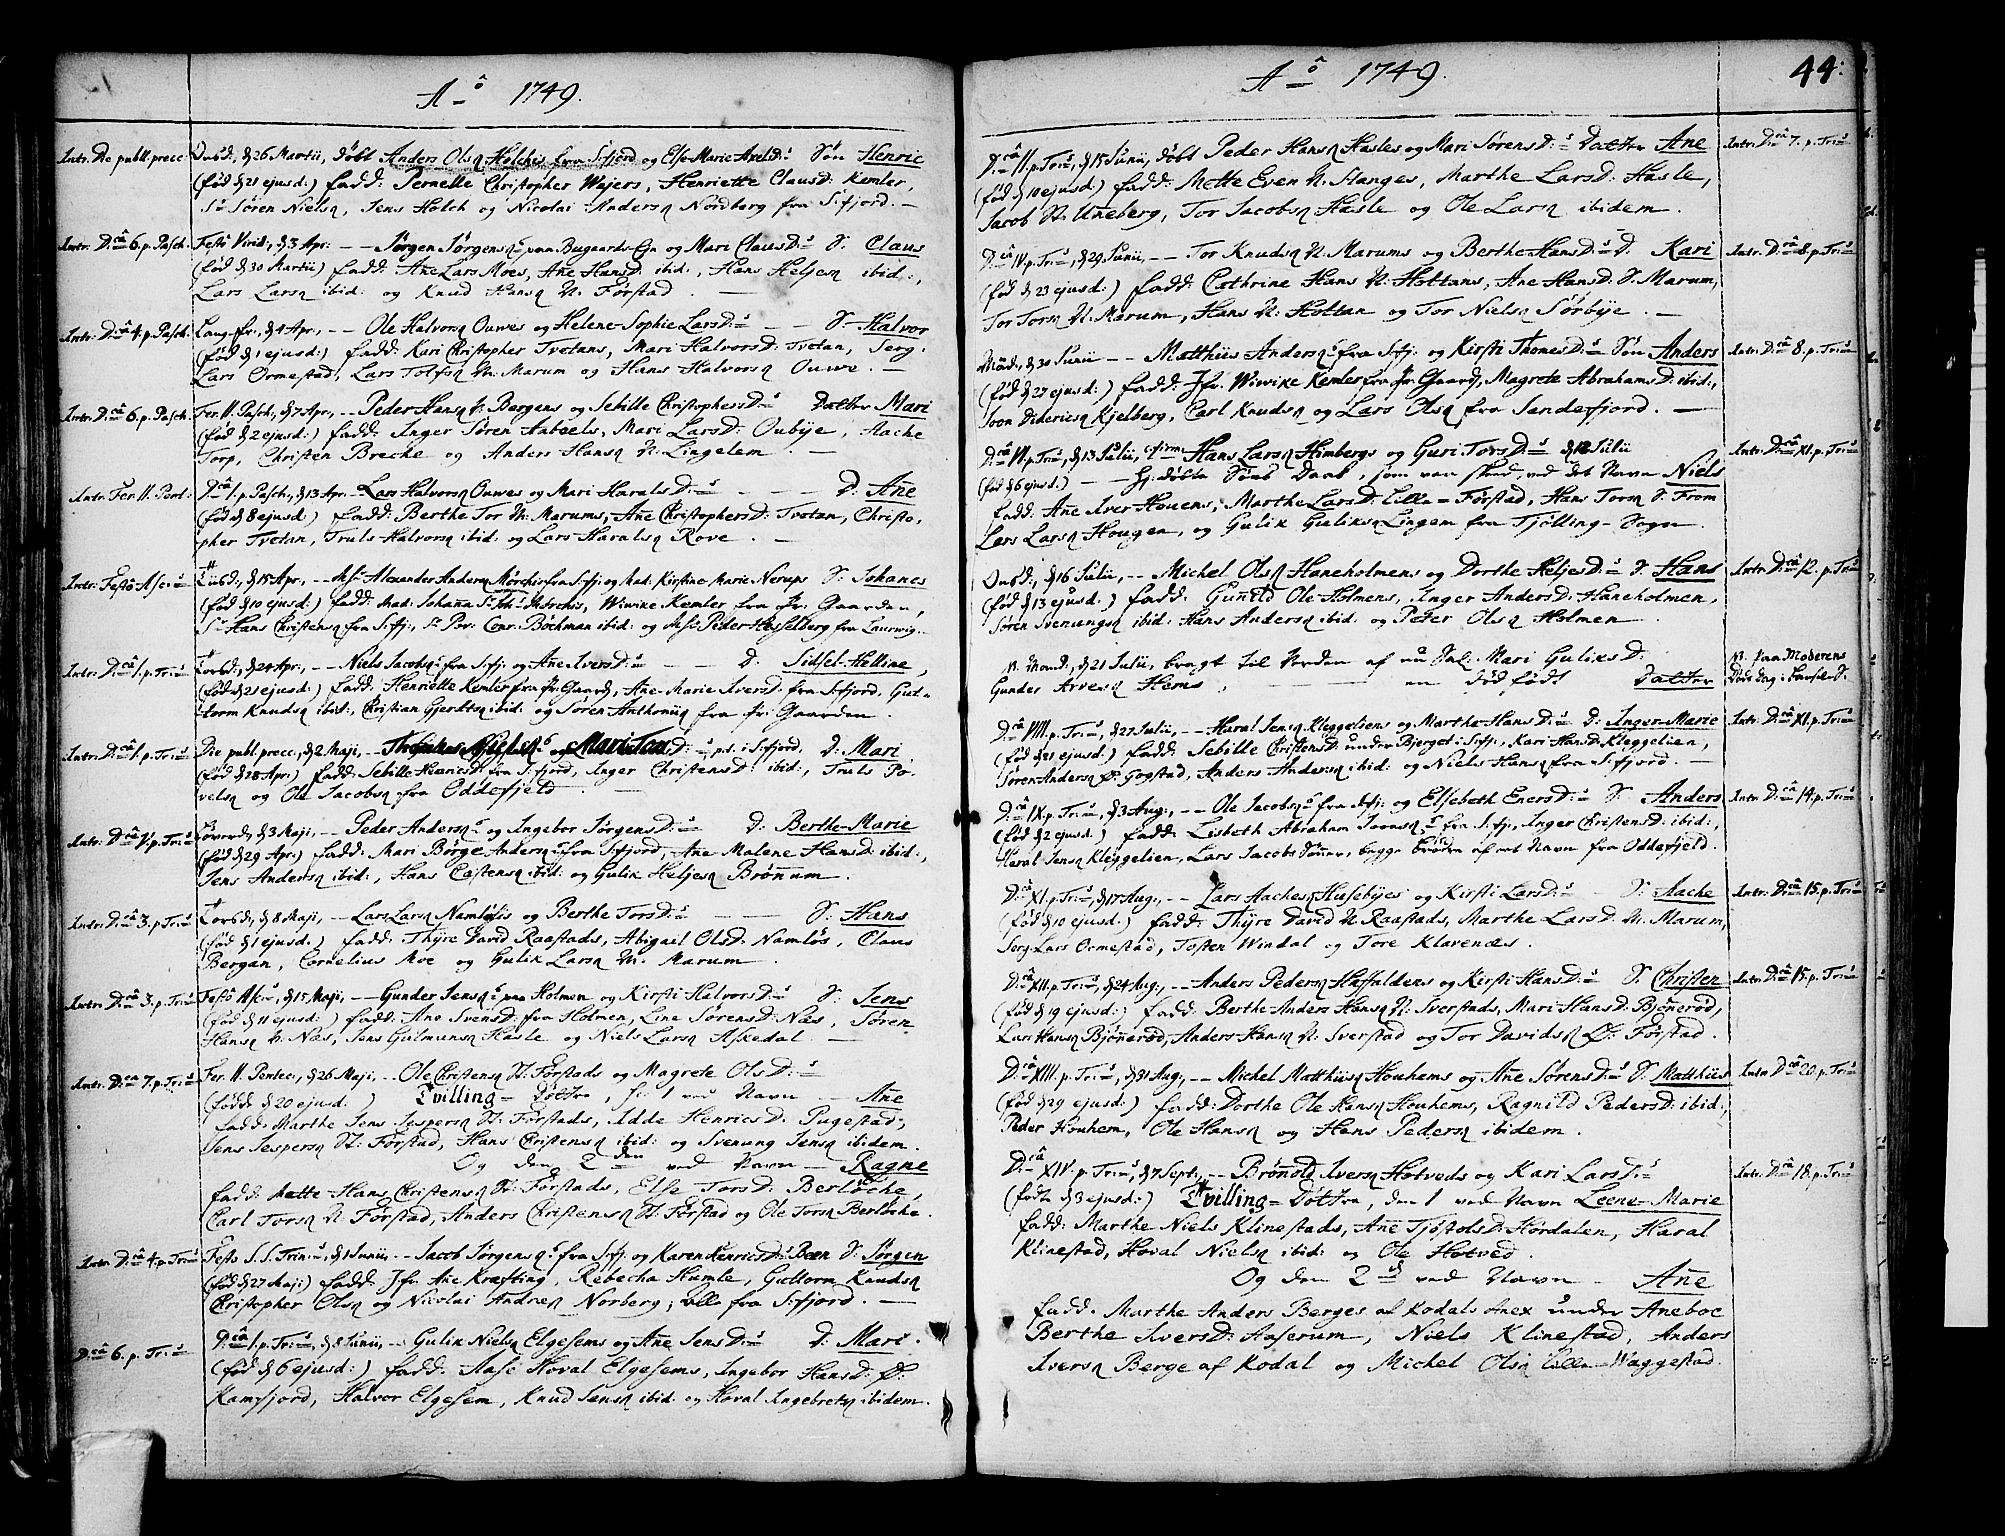 Aô 1749.
Intr. Die publ. prec: Onsd., d. 26 Martii, døbt Anders Olsn Holchis fra S:fjord og Else-Marie AxelsD:s Søn Henric
(fød d. 21 ejusd:) fadd: Pernelle Christopher Wajers, Henriette ClausD: Kemler,
Sr Søren Nielsn, Jens Holch og Nicolai Andersn Nordberg fra S:fjord. —
Intr: D:câ 6. p. Pasch. Festo Virid:, d. 3 Apr: — Jørgen Jørgensn paa Bugaards-Egn og Mari ClausD:s S. Claus
(fød d. 30 Martii) fadd: Ane Lars Moes, Ane HansD. ibid:, Hans Heljesn ibid:,
Lars Larsn ibid: og Knud Hansn N. Førstad. —
Intr: D:câ 4. p. Pasch. Lang-fr., d. 4 Apr., — Ole Halvorsn Ouwes og Helene-Sophie LarsD:s — S. Halvor
(fød d. 1 ejusd:) fadd: Kari Christopher Tvetans, Mari HalvorsD: Tvetan, Serg.
Lars Ormestad, Lars Tolfsn N. Marum og Hans Halvorsn Ouwe. —
Intr: D:câ 6. p. Pasch. Fer. II. Pasch., d. 7 Apr., — Peder Hansn N. Bergans og Sebille ChristophersD:s Datter Mari
(fød d. 2 ejusd:) fadd: Inger Søren Aaboels, Mari LarsD: Oubÿe, Aache
Torp, Christen Breche og Anders Hansn N. Lingelem. —
Intr: Fer. II. Pent: D:câ 1. p. Pasch., d. 13 Apr. — Lars Halvorsn Ouwes og Mari HaralsD:s — D: Ane
(fød d. 8 ejusd:) fadd: Berthe Tor N. Marums, Ane ChristophersD: Tvetan, Christo,
pher Tvetan, Truls Halvorsn ibid: og Lars Haralsn Rove. —
Intr: Festo Asc:s Tiisd:, d. 15 Apr., — Msr Alexander Andersn Mörchis fra S:fj: og Mad: Kirstine-Marie Nerups S. Johanes
(fød d. 10 ejusd:) fadd: Mad: Johanna Sr Joh: Mørchis, Wiwike Kemler fra Pr: Gaarden,
Sr Hans Christensn fra S:fj:, Sr Pov: Conr: Böchman ibid: og Msr Peder Hesselberg fra Laurwig.
Intr: D:câ 1. p. Tri:s Torsd:, d. 24 Apr., — Niels Jacobsn fra S:fj: og Ane IversD:s — D. Sidsel-Helline,
(fød d. 21 ejusd:) fadd: Henriette Kemler fra Pr: Gaard, Ane-Marie IversD: fra S:fjord, Gut-
torm Knudsn ibid:, Christian Gjerdtsn ibid: og Søren Anthoniin fra Pr: Gaarden.
Intr: D:câ 1. p. Tri:s Die publ. prec:, d. 2 Maji, — og Mari D:s p.t. i S:fjord, D: Mari
(fød d. 28 Apr:) fadd: Sebille HenricsD: fra S:fjord, Inger ChristensD: ibid:, Truls Po,
velsn og Ole Jacobsn fra Oddefjeld. —
Intr: D:câ V. p. Tri:s Löverd:, d. 3 Maji, — Peder Andersn og Ingebor JørgensD:s D: Berthe-Marie
(fød d. 29 Apr:) fadd: Mari Børge Andersn fra S:fjord, Ane Malene HansD: ibid:,
Jens Andersn ibid:, Hans Castensn ibid: og Gulik Heljesn Brønum.
Intr: D:câ 3. p. Tri:s Torsd:, d. 8 Maji, — Lars Larsn Namløsis og Berthe TorsD:s — S: Hans
(fød d. 1 ejusd:) fadd: Thÿre David Raastads, Abigail OlsD. Namløs, Claus
Bergan, Cornelius Moe og Gulik Larsn N. Marum.
Intr: D:câ 3. p. Tri:s Festo Asc:s, d. 15 Maji, — Gunder Jensn paa Holmen og Kirsti HalvorsD:s S: Jens
(fød d. 11 ejusd:) fadd: Ane SvensD: fra Holmen, Line SørensD: Næs, Søren
Hansn N. Næs, Jens Gulmunsn Hasle og Niels Larsn Askedal. —
Intr: D:câ 7. p. Tri:s Fer. II. Pentec:, d. 26 Maji, — Ole Christensn N. Førstads og Magrete OlsD:s
(fødde d. 20 ejusd:) Tvilling-Døttre, hin 1 ved Navn — Ane
fadd: Marthe Jens Jespersn N. Førstads, Idde HenricsD. Pugestad,
Jens Jespersn N. Førstad, Hans Christensn ibid: og Svenung Jensn ibidem.
Og den 2den ved Navn — Ragne
fadd: Mette Hans Christensn N. Førstads, Else TorsD: Berløche,
Carl Torsn N. Førstad, Anders Christensn N. Førstad og Ole Torsn Berløche.
Intr: D:câ 4. p. Tri:s Festo S.S. Trin:s, d. 1 Junii, — Jacob Jørgensn fra S:fj: og Karen HenricsD: Been S: Jørgen
(fød d. 27 Maji) fadd: Jfr: Ane Kræfting, Rebecha Humle, Guttorm Knudsn
Christopher Olsn og Nicolai Andresn Norberg; alle fra S:fjord. —
D:câ 6. p. Tri:s D:câ 1. p. Tri:s, d. 8 Junii, — Gulik Nielsn Elgesems og Ane JensD:s D: Mari.
(fød d. 6 ejusd:) fadd: Aase Hoval Elgesems, Ingebor HansD: Ø:
Kamfjord, Halvor Elgesem, Knud Jensn ibid: og Hoval Ingebretsn ibidem.
Aô 1749. 44:
D:câ II. p. Tri:s, d. 15 Junii, døbt Peder Hansn Hasles og Mari SørensD:s Datter Ane Intr: D:câ 7. p. Tri:s
(fød d. 10 ejusd:) fadd: Mette Even N. Slanges, Marthe LarsD: Hasle,
Jacob St. Uneberg, Tor Jacobsn Hasle og Ole Larsn ibidem.
D:câ IV. p. Tri:s, d. 29 Junii, — Tor Knudsn N. Marums og Berthe HansD:s D. Kari Intr: D:câ 8. p. Tri:s
(fød d. 23 ejusd:) fadd: Cathrine Hans N. Holtans, Ane HansD. S. Marum,
Tor Torsn N. Marum, Hans N. Holtan og Tor Nielsn Sørbÿe. —
Mand:, d. 30 Junii — Matthiis Andersn fra S:fj: og Kirsti ThonesD:s Søn Anders Intr: D:câ 8. p. Tri:s
(fød d. 27 ejusd:) fadd: Jfr: Wiwike Kemler fra Pr: Gaard, Magrete AbrahamsD: ibid:,
Joon Didericsn Kjelberg, Carl Knudsn og Lars Olsn fra Sandefjord. —
D:câ VI. p. Tri:s, d. 13 Julii, Hans Larsn Himbergs og Guri TorsD:s d. 12 Julii Intr: D:câ XI. p. Tri:s
(fød d. 6 ejusd:) — Hj: døbte Søns Daab, som var skeed, ved det Navn Niels
fadd: Ane Iver Houens, Marthe LarsD: Lille-Førstad, Hans Torsn S. From
Lars Larsn Hougen, og Gulik Guliksn Lingem fra Tjølling-Sogn.
Onsd:, d. 16 Julii, — Michel Olsn Haneholmens og Dorthe HeljesD:s S. Hans Intr: D:câ 12. p. Tri:s
(fød d. 13 ejusd:) fadd: Gunild Ole Holmens, Inger AndersD: Haneholmen,
Søren Svenungsn ibid: Hans Andersn ibid: og Peter Olsn Holmen.
n. Mand:, d. 21 Julii, bragt til Jorden af nu Sal: Mari GuliksD. n. paa Moderens
Gunder Arvesn Hems, — en død født Datter Døds dag
D:câ VIII. p. Tri:s, d. 27 Julii, — Haral Jensn Kleggeliens og Marthe HansD:s D: Inger-Marie Intr: D:câ XI. p. Tri:s
(fød d. 21 ejusd:) fadd: Sebille ChristensD. under Bjerget i S:fj:, Kari HansD. Kleggelien,
Søren Andersn Ø: Gogstad, Anders Andersn ibid: og Niels Hansn fra S:fjord. —
D:câ IX. p. Tri:s, d. 3 Aug:, — Ole Jacobsn fra S:fj: og Elsebeth EnersD:s S. Anders Intr: D:câ 14. p. Tri:s
(fød d. 2 ejusd:) fadd: Lisbeth Abraham Joonsn fra S:fj:, Inger ChristensD: ibid:,
Haral Jensn Kleggelien, Lars Jacobs Sønner, begge Brødre af eet Navn fra Oddefjeld.
D:câ XI. p. Tri:s, d. 17 Aug:, — Lars Aachesn Husebÿes og Kirsti LarsD:s — S: Aache Intr: D:câ 15. p. Tri:s
(fød d. 10 ejusd:) fadd: Thÿre David N. Raastads, Marthe LarsD. N. Marum,
Serg. Lars Ormestad, Tosten Windal og Tore Klavenæs.
D:câ XII. p. Tri:s, d. 24 Aug:, — Anders Pedersn Haffaldens og Kirsti HansD:s S. Christen Intr: D:câ 15. p. Tri:s
(fød d. 19 ejusd:) fadd: Berthe Anders Hansn N. Sverstads, Mari HansD: Bjönerød,
Lars Hansn Bjönerød, Anders Hansn N. Sverstad og Tor Davidsn Ø: Førstad.
D:câ XIII. p. Tri:s, d. 31 Aug:, — Michel Matthiisn Houhems og Ane SørensD:s S. Matthiis Intr: D:câ 20. p. Tri:s
(fød d. 29 ejusd:) fadd: Dorthe Ole Hansn Houhems, Ragnild PedersD: ibid:,
Peder Houhem, Ole Hansn og Hans Pedersn ibidem.
D:câ XIV. p. Tri:s, d. 7 Sept:, — Brønild Iversn Hotveds og Kari LarsD:s Intr: D:câ 18. p. Tri:s
(fødte d. 3 ejusd:) Tvilling-Døttre, den 1 ved Navn Leene-Marie
fadd: Marthe Niels Klinestads, Ane TjøstolsD: Hordalen, Haral
Klinestad, Hoval Nielsn ibid: og Ole Hotved.
Og den 2den ved Navn — Ane
fadd. Marthe Anders Berges af Kodals Anex under Aneboe
Berthe IversD: Aaserum, Niels Klinestad, Anders
Iversn Berge af Kodal og Michel Olsn Lille-Waggestad.